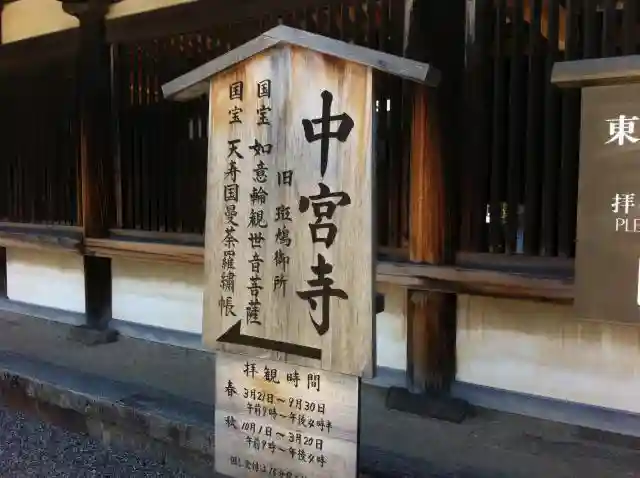 中宮寺
旧 斑鳩御所
国宝 如意輪観世音菩薩
国宝 天寿国曼荼羅繡帳
拝観時間
春 3月21日〜9月30日
午前9時〜午後4時半
秋 10月1日〜3月20日
午前9時〜午後4時
東
拝
PLE